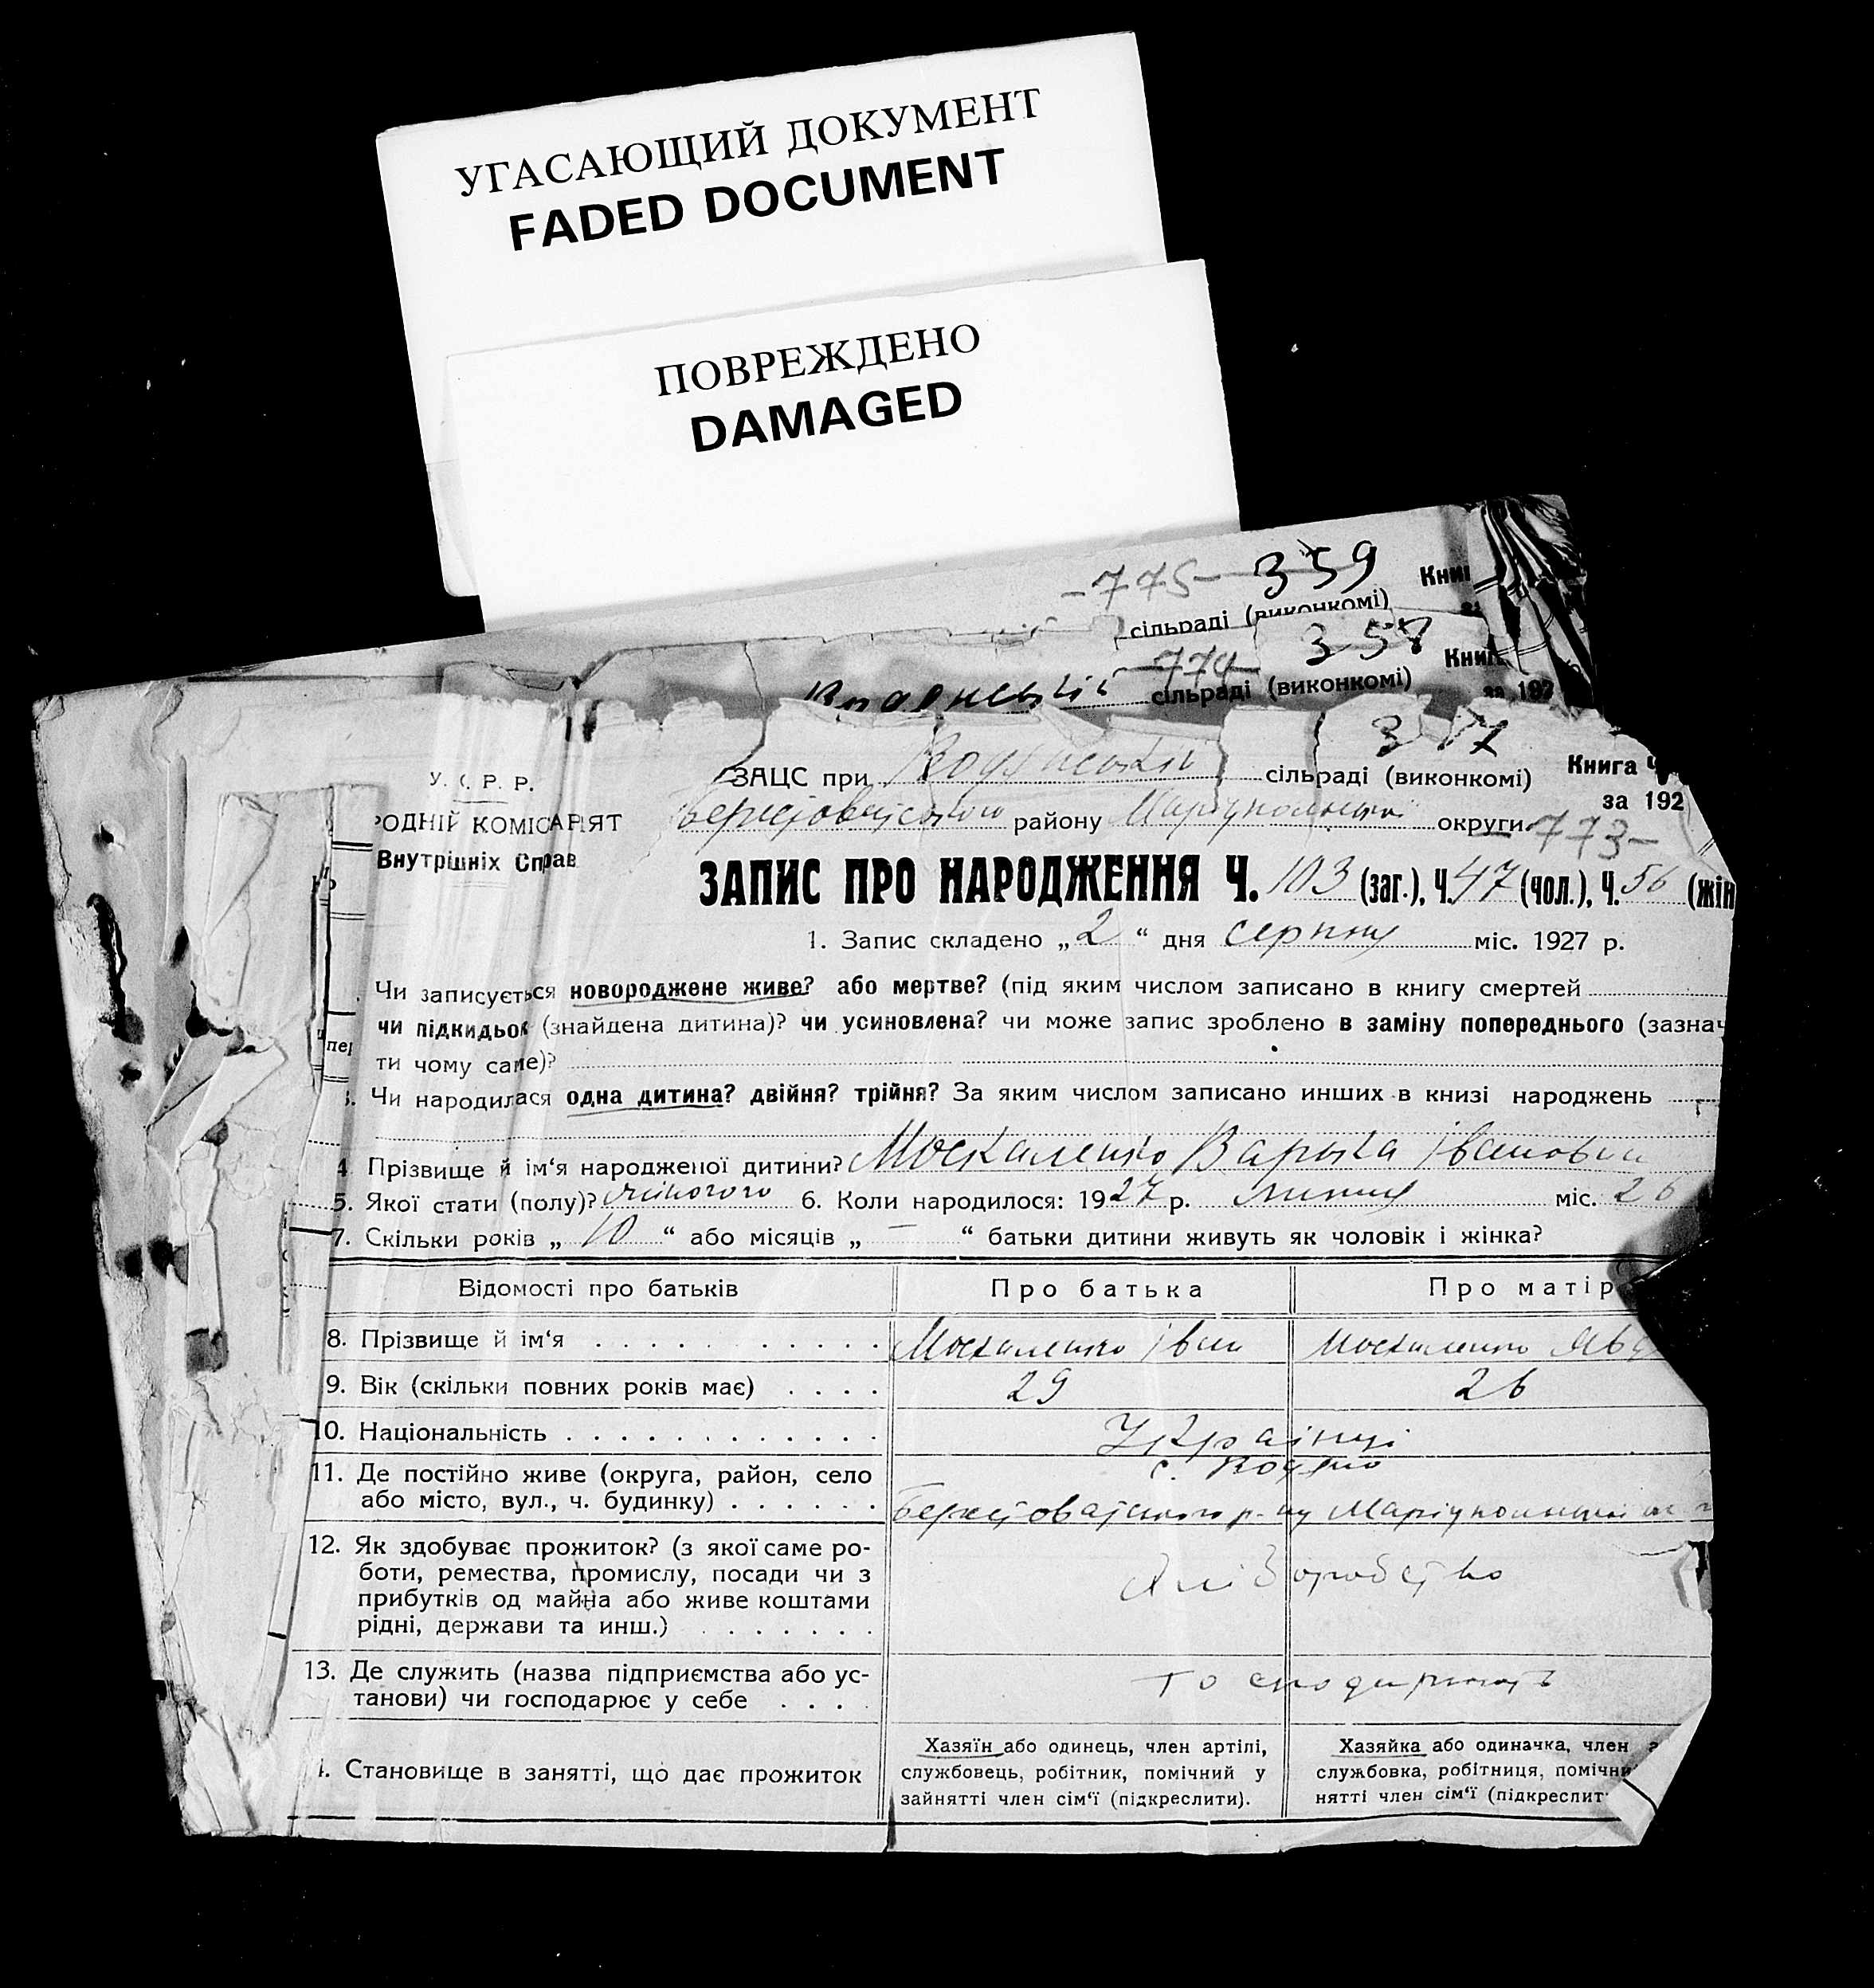 УГАСАЮЩИЙ ДОКУМЕНТ
FADED DOCUMENT
ПОВРЕЖДЕНО
DAMAGED
-775- 359
сільраді (виконкомі)
774 358
сільраді (виконкомі)
за 192
У. С. Р. Р.
РОДНІЙ КОМІСАРІЯТ
Внутрішніх Справ
ЗАЦС при Водянській сільраді (виконкомі)
Книга Ч
за 192
району Маріупольської округи. 773-
ЗАПИС ПРО НАРОДЖЕННЯ Ч. 103 (заг.), Ч. 47 (чол.), Ч. 56 (жін
1. Запис складено „2“ дня серпня міс. 1927 р.
Чи записується новороджене живе? або мертве? (під яким числом записано в книгу смертей
чи підкидьок (знайдена дитина)? чи усиновлена? чи може запис зроблено в заміну попереднього (зазнач
ти чому саме)?
Чи народилася одна дитина? двійня? трійня? За яким числом записано инших в книзі народжень
4 Прізвище й ім‘я народженої дитини? Москаленко Варька
5. Якої стати (полу)? жіночого 6. Коли народилося: 1927 р. липня міс. 26
7. Скільки років „10“ або місяців „—“ батьки дитини живуть як чоловік і жінка?
Відомості про батьків
Про батька
Про матір
8. Прізвище й ім‘я Москаленко Іван Москаленко
9. Вік (скільки повних років має) 29 26
10. Національність Українці
11. Де постійно живе (округа, район, село
або місто, вул., ч. будинку)
с. Водяно
Берестоватського р-ну Маріупольської
12. Як здобуває прожиток? (з якої саме ро-
боти, ремества, промислу, посади чи з
прибутків од майна або живе коштами
рідні, держави та инш.)
хліборобство
13. Де служить (назва підприємства або ус-
танови) чи господарює у себе
господарюють
Становище в занятті, що дає прожиток
Хазяїн або одинець, член артілі,
службовець, робітник, помічний у
зайнятті член сім‘ї (підкреслити).
Хазяйка або одиначка, член
службовка, робітниця, помічни
нятті член сім‘ї (підкреслит